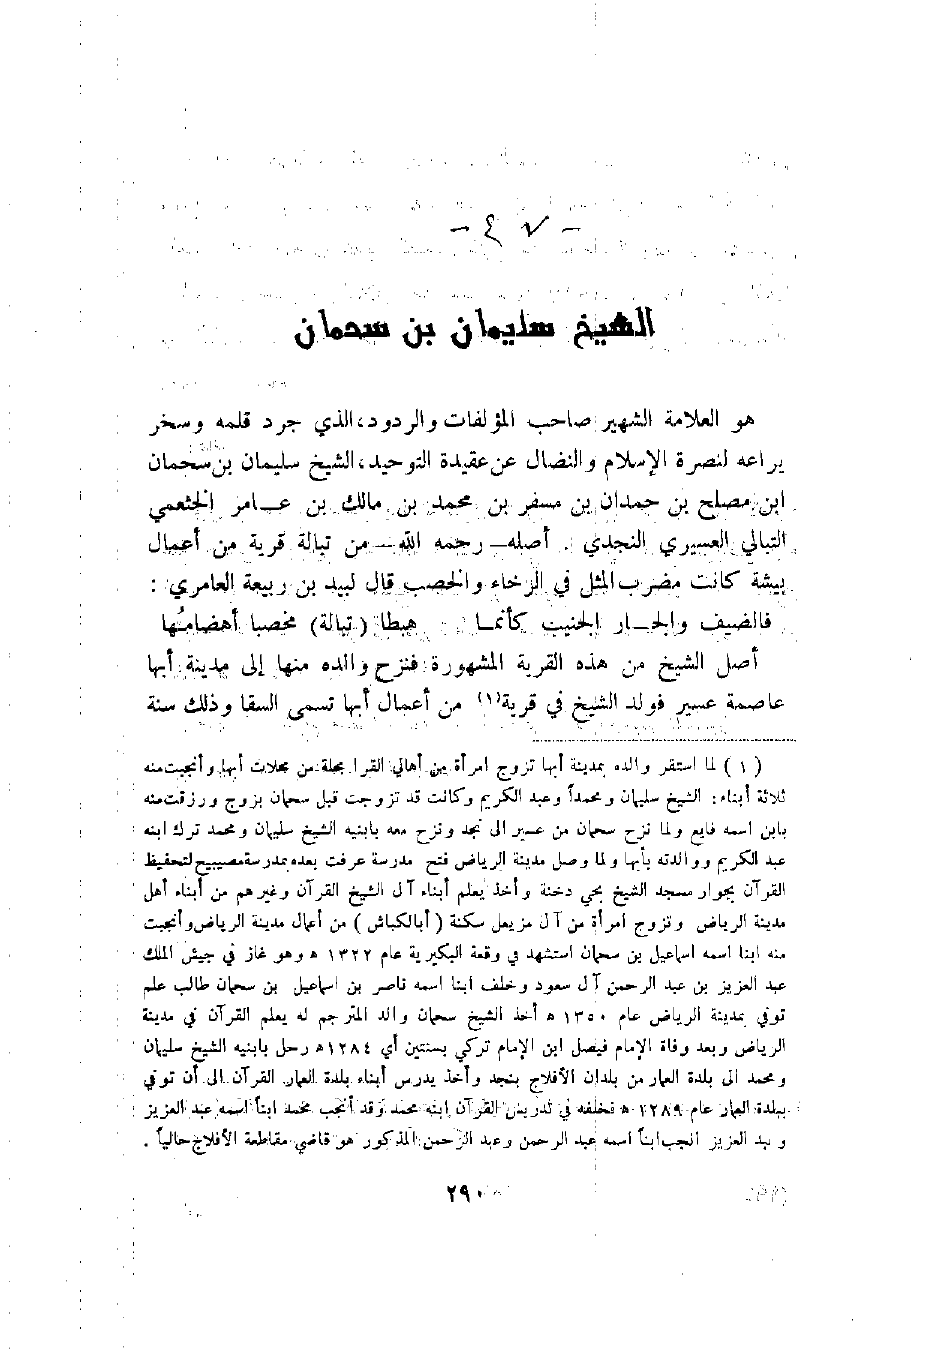 - ٤٧ -
الشيخ سليمان بن سحمان
هو العلامة الشهير صاحب المؤلفات والردود، الذي جرد قلمه وسخر
يراعه لنصرة الإسلام والنضال عن عقيدة التوحيد، الشيخ سليمان بن سحمان
ابن مصلح بن حمدان بن مسفر بن محمد بن مالك بن عامر الخثعمي
التبالي العسيري النجدي . أصله – رحمه الله – من تبالة قرية من أعمال
بيشة كانت مضرب المثل في الرخاء والخصب قال لبيد بن ربيعة العامري :
فالضيف والجار الجنيب كأنما هبطا (تبالة) مخصبا أهضامُها
أصل الشيخ من هذه القرية المشهورة فنزح والده منها إلى مدينة أبها
عاصمة عسير فولد الشيخ في قرية (١) من أعمال أبها تسمى السقا وذلك سنة
( ١ ) لما استقر والده بمدينة أبها تزوج امرأة من أهالي القرا محلة من محلات أبها وأنجبت منه
ثلاثة أبناء : الشيخ سليمان ومحمداً وعبد الكريم وكانت قد تزوجت قبل سحمان بزوج ورزقت منه
بابن اسمه فايع ولما نزح سحمان من عسير الى نجد ونزح معه بابنيه الشيخ سليمان ومحمد ترك ابنه
عبد الكريم ووالدته بأبها ولما وصل مدينة الرياض فتح مدرسة عرفت بعده بمدرسة مصيبيح لتحفيظ
القرآن بجوار مسجد الشيخ بحي دخنة وأخذ يعلم أبناء آل الشيخ القرآن وغيرهم من أبناء أهل
مدينة الرياض وتزوج امرأة من آل مزيعل سكنة ( أبالكباش ) من أعمال مدينة الرياض وأنجبت
منه ابنا اسمه اسماعيل بن سحمان استشهد في وقعة البكيرية عام ١٣٢٢ ه وهو غاز في جيش الملك
عبد العزيز بن عبد الرحمن آل سعود وخلف ابنا اسمه ناصر بن اسماعيل بن سحمان طالب علم
توفي بمدينة الرياض عام ١٣٥٠ ه أخذ الشيخ سحمان والد المترجم له يعلم القرآن في مدينة
الرياض وبعد وفاة الإمام فيصل ابن الإمام تركي بسنتين أي ١٢٨٤ه رحل بابنيه الشيخ سليمان
ومحمد الى بلدة العمار من بلدان الأفلاج بنجد وأخذ يدرس أبناء بلدة العمار القرآن الى أن توفي
ببلدة العمار عام ١٢٨٩ ه فخلفه في تدريس القرآن ابنه محمد وقد أنجب محمد ابناً اسمه عبد العزيز
وعبد العزيز انجب ابناً اسمه عبد الرحمن وعبد الرحمن المذكور هو قاضي مقاطعة الأفلاج حالياً .
٢٩٠